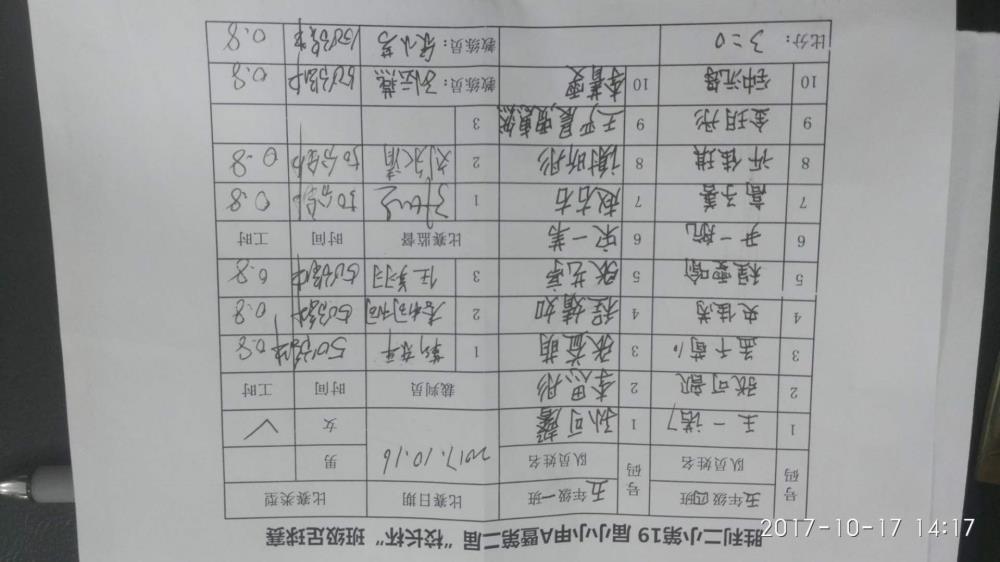 胜利二小第19届小小甲A暨第二届“校长杯”班级足球赛
号码 五年级四班 号码 五年级一班 比赛日期 比赛类型
队员姓名 队员姓名 2017.10.16 男
1 王一诺 1 孙可馨 女 ✓
2 张可歆 2 李思彤 裁判员 时间 工时
3 孟子荀 3 张益萌 1 靳春平 50分钟 0.8
4 史佳为 4 程婧如 2 50分钟 0.8
5 程雯喻 5 张艺宁 3 任美羽 50分钟 0.8
6 尹一航 6 宋一诺 比赛监督 时间 工时
7 高子善 7 赵右右 1 50分钟 0.8
8 许佳琪 8 谢昕彤 2 刘永清 50分钟 0.8
9 金玥彤 9 王平晨, 3
10 钟沅芩 10 李菁雯 教练员：孙云燕 50分钟 0.8
比分： 3:0 教练员：徐小芳 50分钟 0.8
2017-10-17 14:17